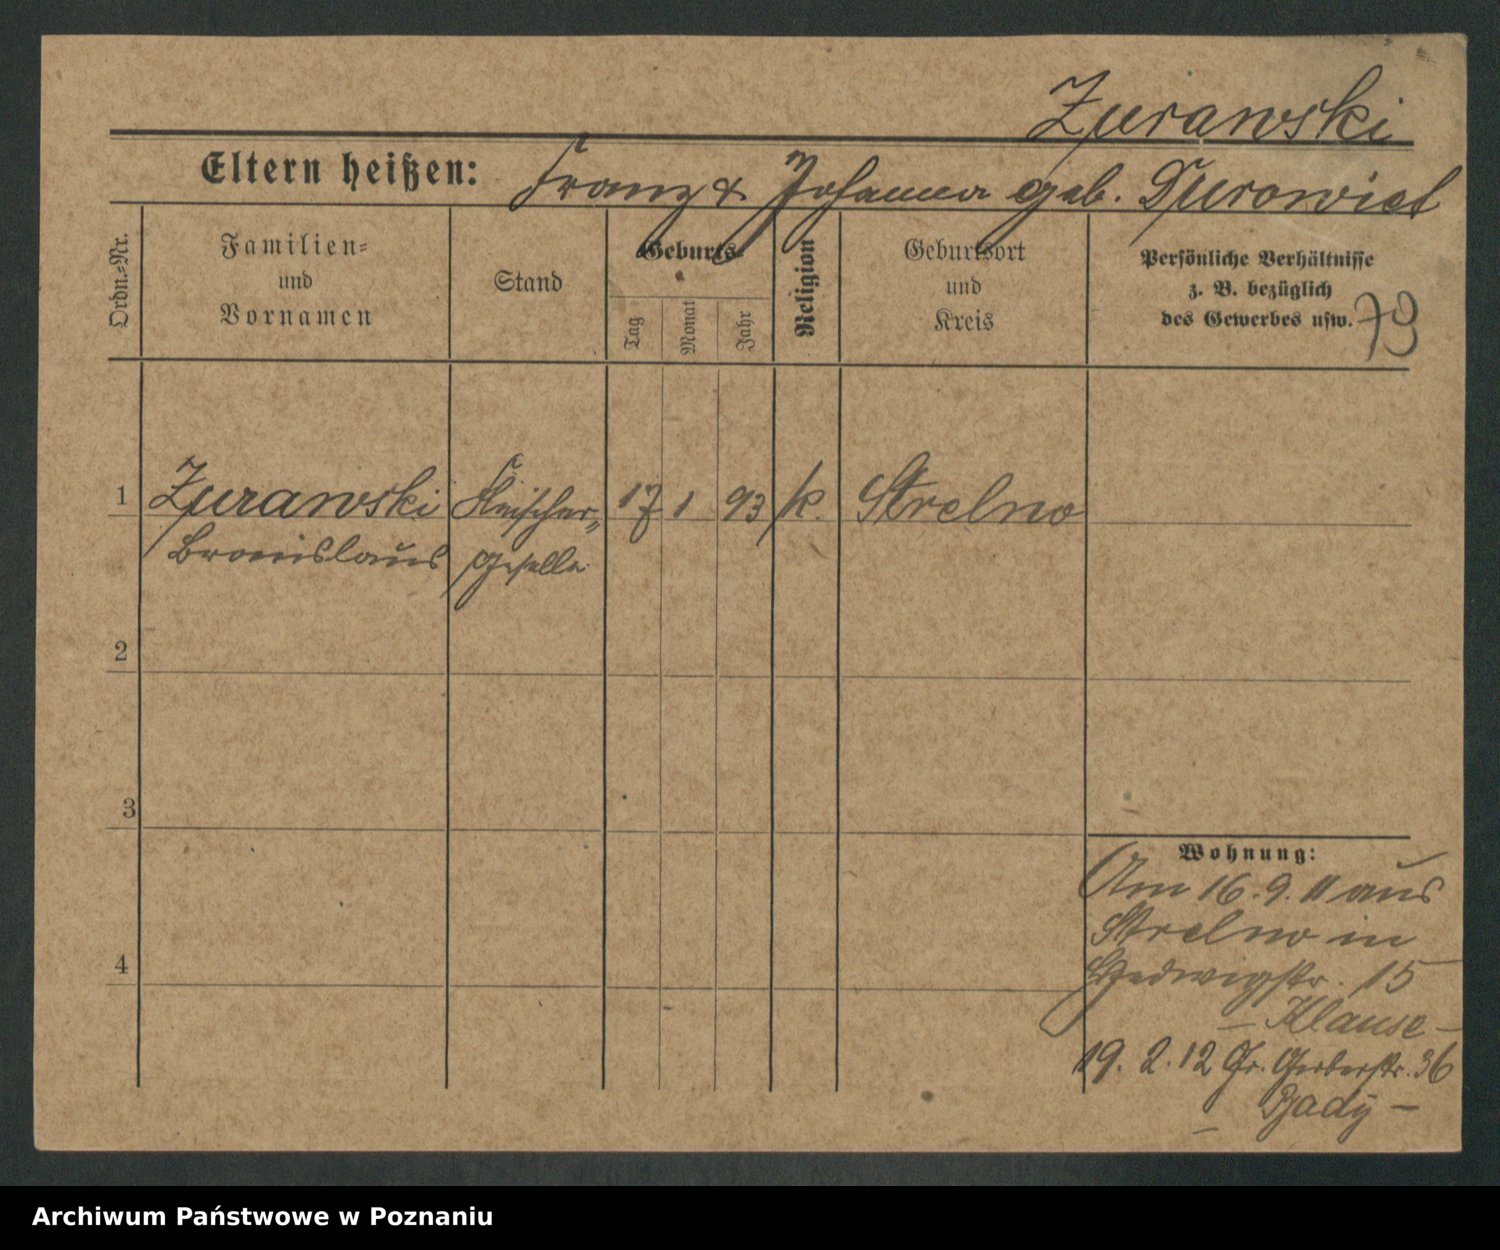 Zurawski
Eltern heißen: Franz & Johanna geb.
Ordn.=Nr.
Familien=
und
Vornamen
Stand
Geburts=
Tag
Monat
Jahr
Religion
Geburtsort
und
Kreis
Persönliche Verhältnisse
z. B. bezüglich
des Gewerbes usw.
73
1 Zurawski Fleischer= 17 1 93 k. Strelno
Bronislaus geselle
2
3
4
Wohnung:
Am 16.9.11 aus
Strelno in
Hedwigstr. 15
– Klause –
19.2.12 Gr. Gerberstr. 36
–
Archiwum Państwowe w Poznaniu